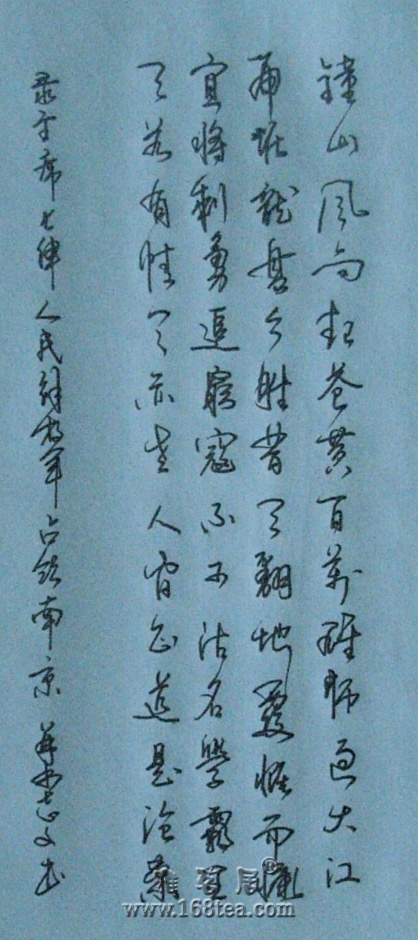 鐘山风雨起苍黄百萬雄师过大江
虎踞龍盘今胜昔天翻地覆慨而慷
宜将剩勇追窮寇不可沽名學霸王
天若有情天亦老人间正道是沧桑
录主席七律人民解放军占领南京 志文书
www.168tea.com